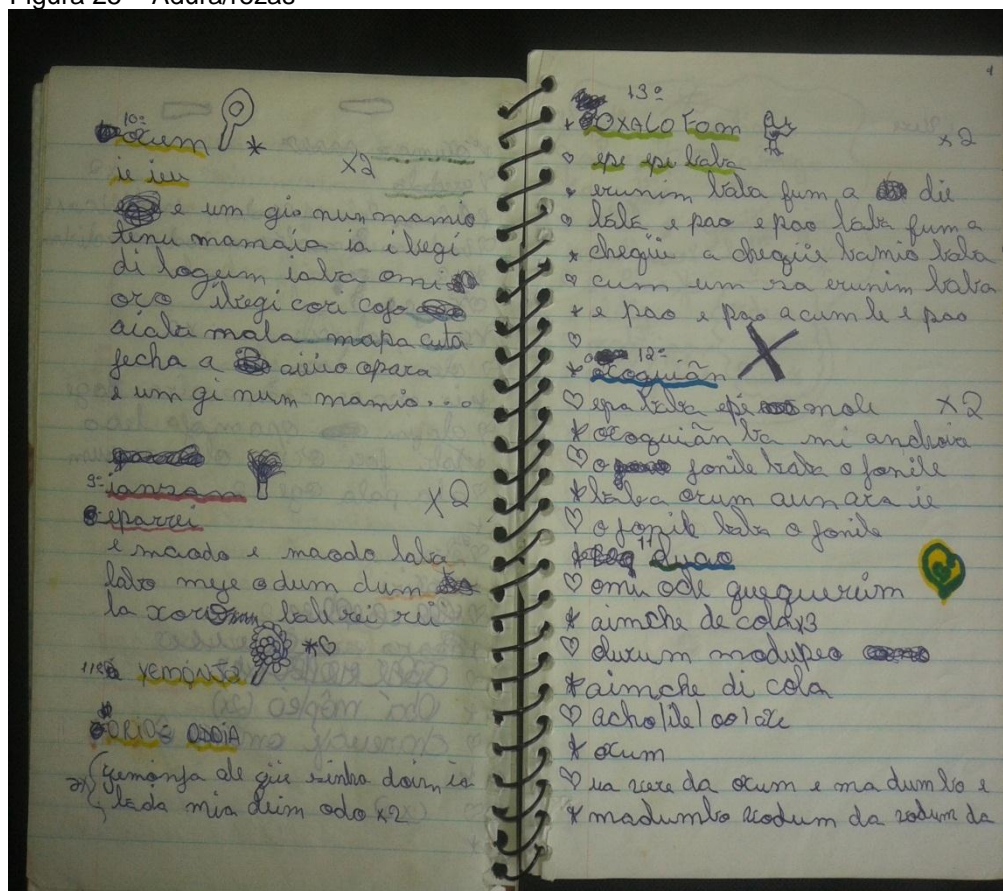 Figura 28 – Adura/rezas
10ª
ocum * x2
ie ieu
e um gio num mamio
tenu mamaia ia i begi
di logum iaba omi
oro ibegi cori cojo
aiaba mala mapa cuta
fecha a aieuo opara
e um gi num mamio....
9ª iansan x2
eparrei
e maodo e maodo laba
labo meje odum dum
la xoro balrei rei
*♡
11ª yemonja
ORIOS ODDIA
2x yemonja ale güe sinha doim ia
lada mia deim odo x2
13º
* OXALO Fom x2
♡ epe epe baba
* erunim baba fum a die
♡ baba e pao e pao baba fum a
* chegüe a chegüe bamio baba
♡ cum um sa erunim baba
* e pao e pao acum le e pao
♡
12º
* ocoguiãn X
♡ epa baba epe mole x2
* ocoguiãn ba mi androia
♡ o fonile baba o fonile
* babea orum aunara ie
♡ o fonile baba o fonile
* 11 duao
♡ omi ode guequerüm
* aimche de cola x3
♡ durum modupeo
* aimche di cola
♡ acho/ile/oo/axe
* ocum
♡ ua xere da ocum e ma dumbo e
* madumbo xodum da xodum da